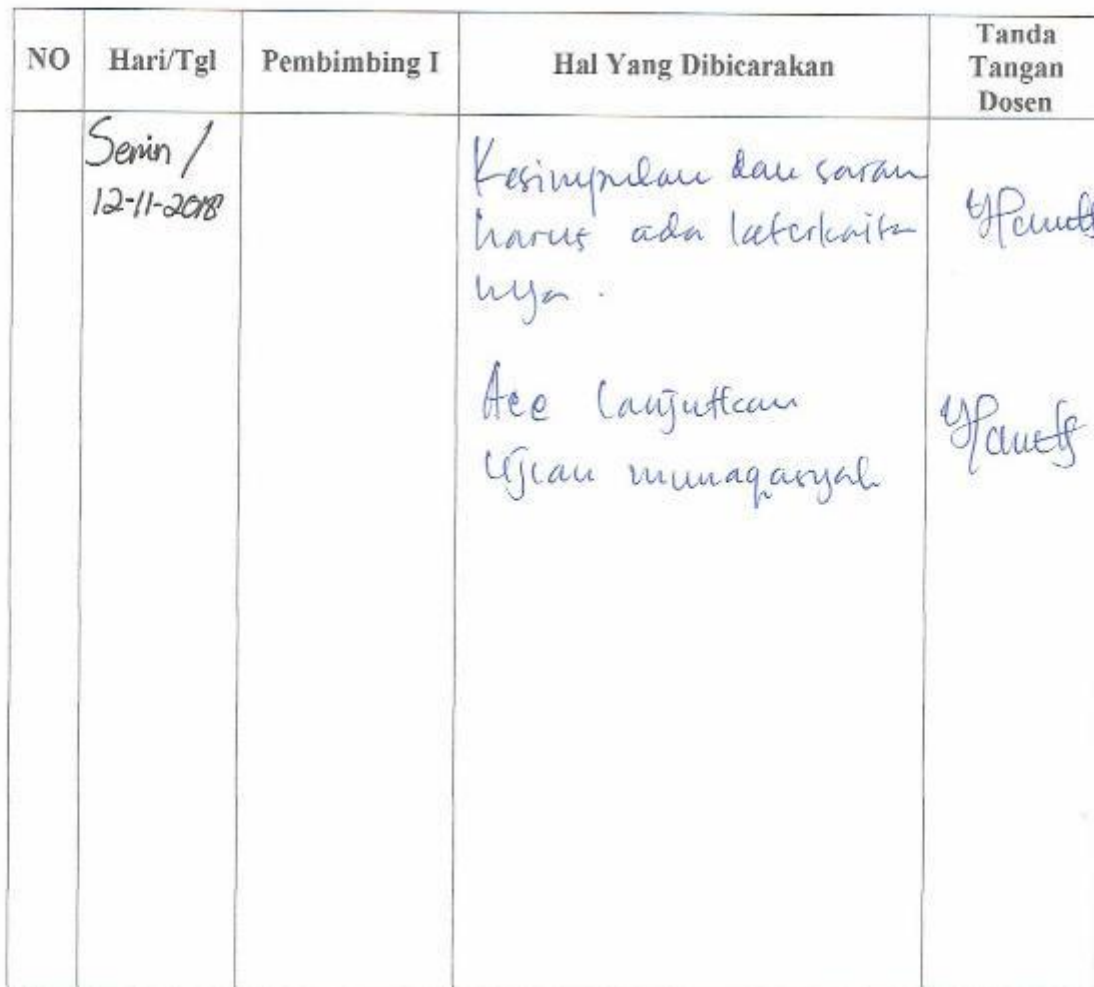 NO Hari/Tgl Pembimbing I Hal Yang Dibicarakan Tanda Tangan Dosen
Senin /
12-11-2018
Kesimpulan dan saran
harus ada keterkaitan
nya .
Acc lanjutkan
Ujian munaqasyah